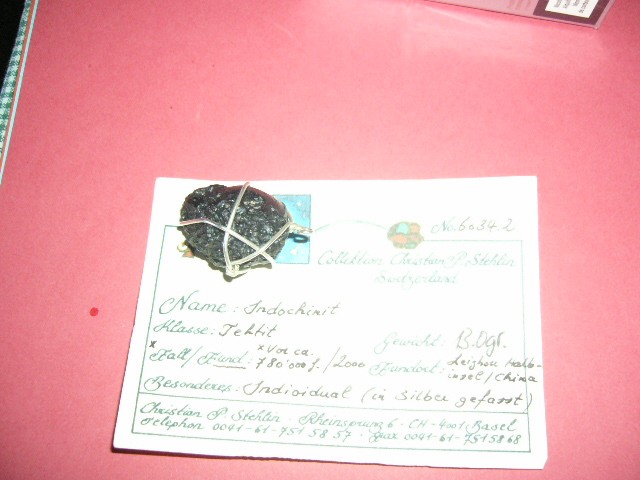 No. 6034.2
Collektion Christian P. Stehlin
Switzerland
Name: Indochinit
Klasse: Tektit
Gewicht: g.
x x Vor ca.
Fall/Fund: 780'000 J. /2000 Fundort: Leizhou Halb-
insel/China
Besonderes: Individual (in Silber gefasst)
Christian P. Stehlin - Rheinsprung 6 - CH-4001 Basel
Telephon 0041-61-751 58 57 - Fax 0041-61-751 58 68